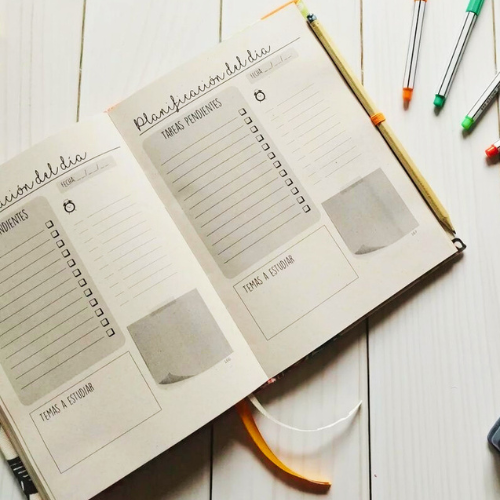 ación del día
FECHA
NDIENTES
TEMAS A ESTUDIAR
Planificación del día
FECHA
TAREAS PENDIENTES
TEMAS A ESTUDIAR